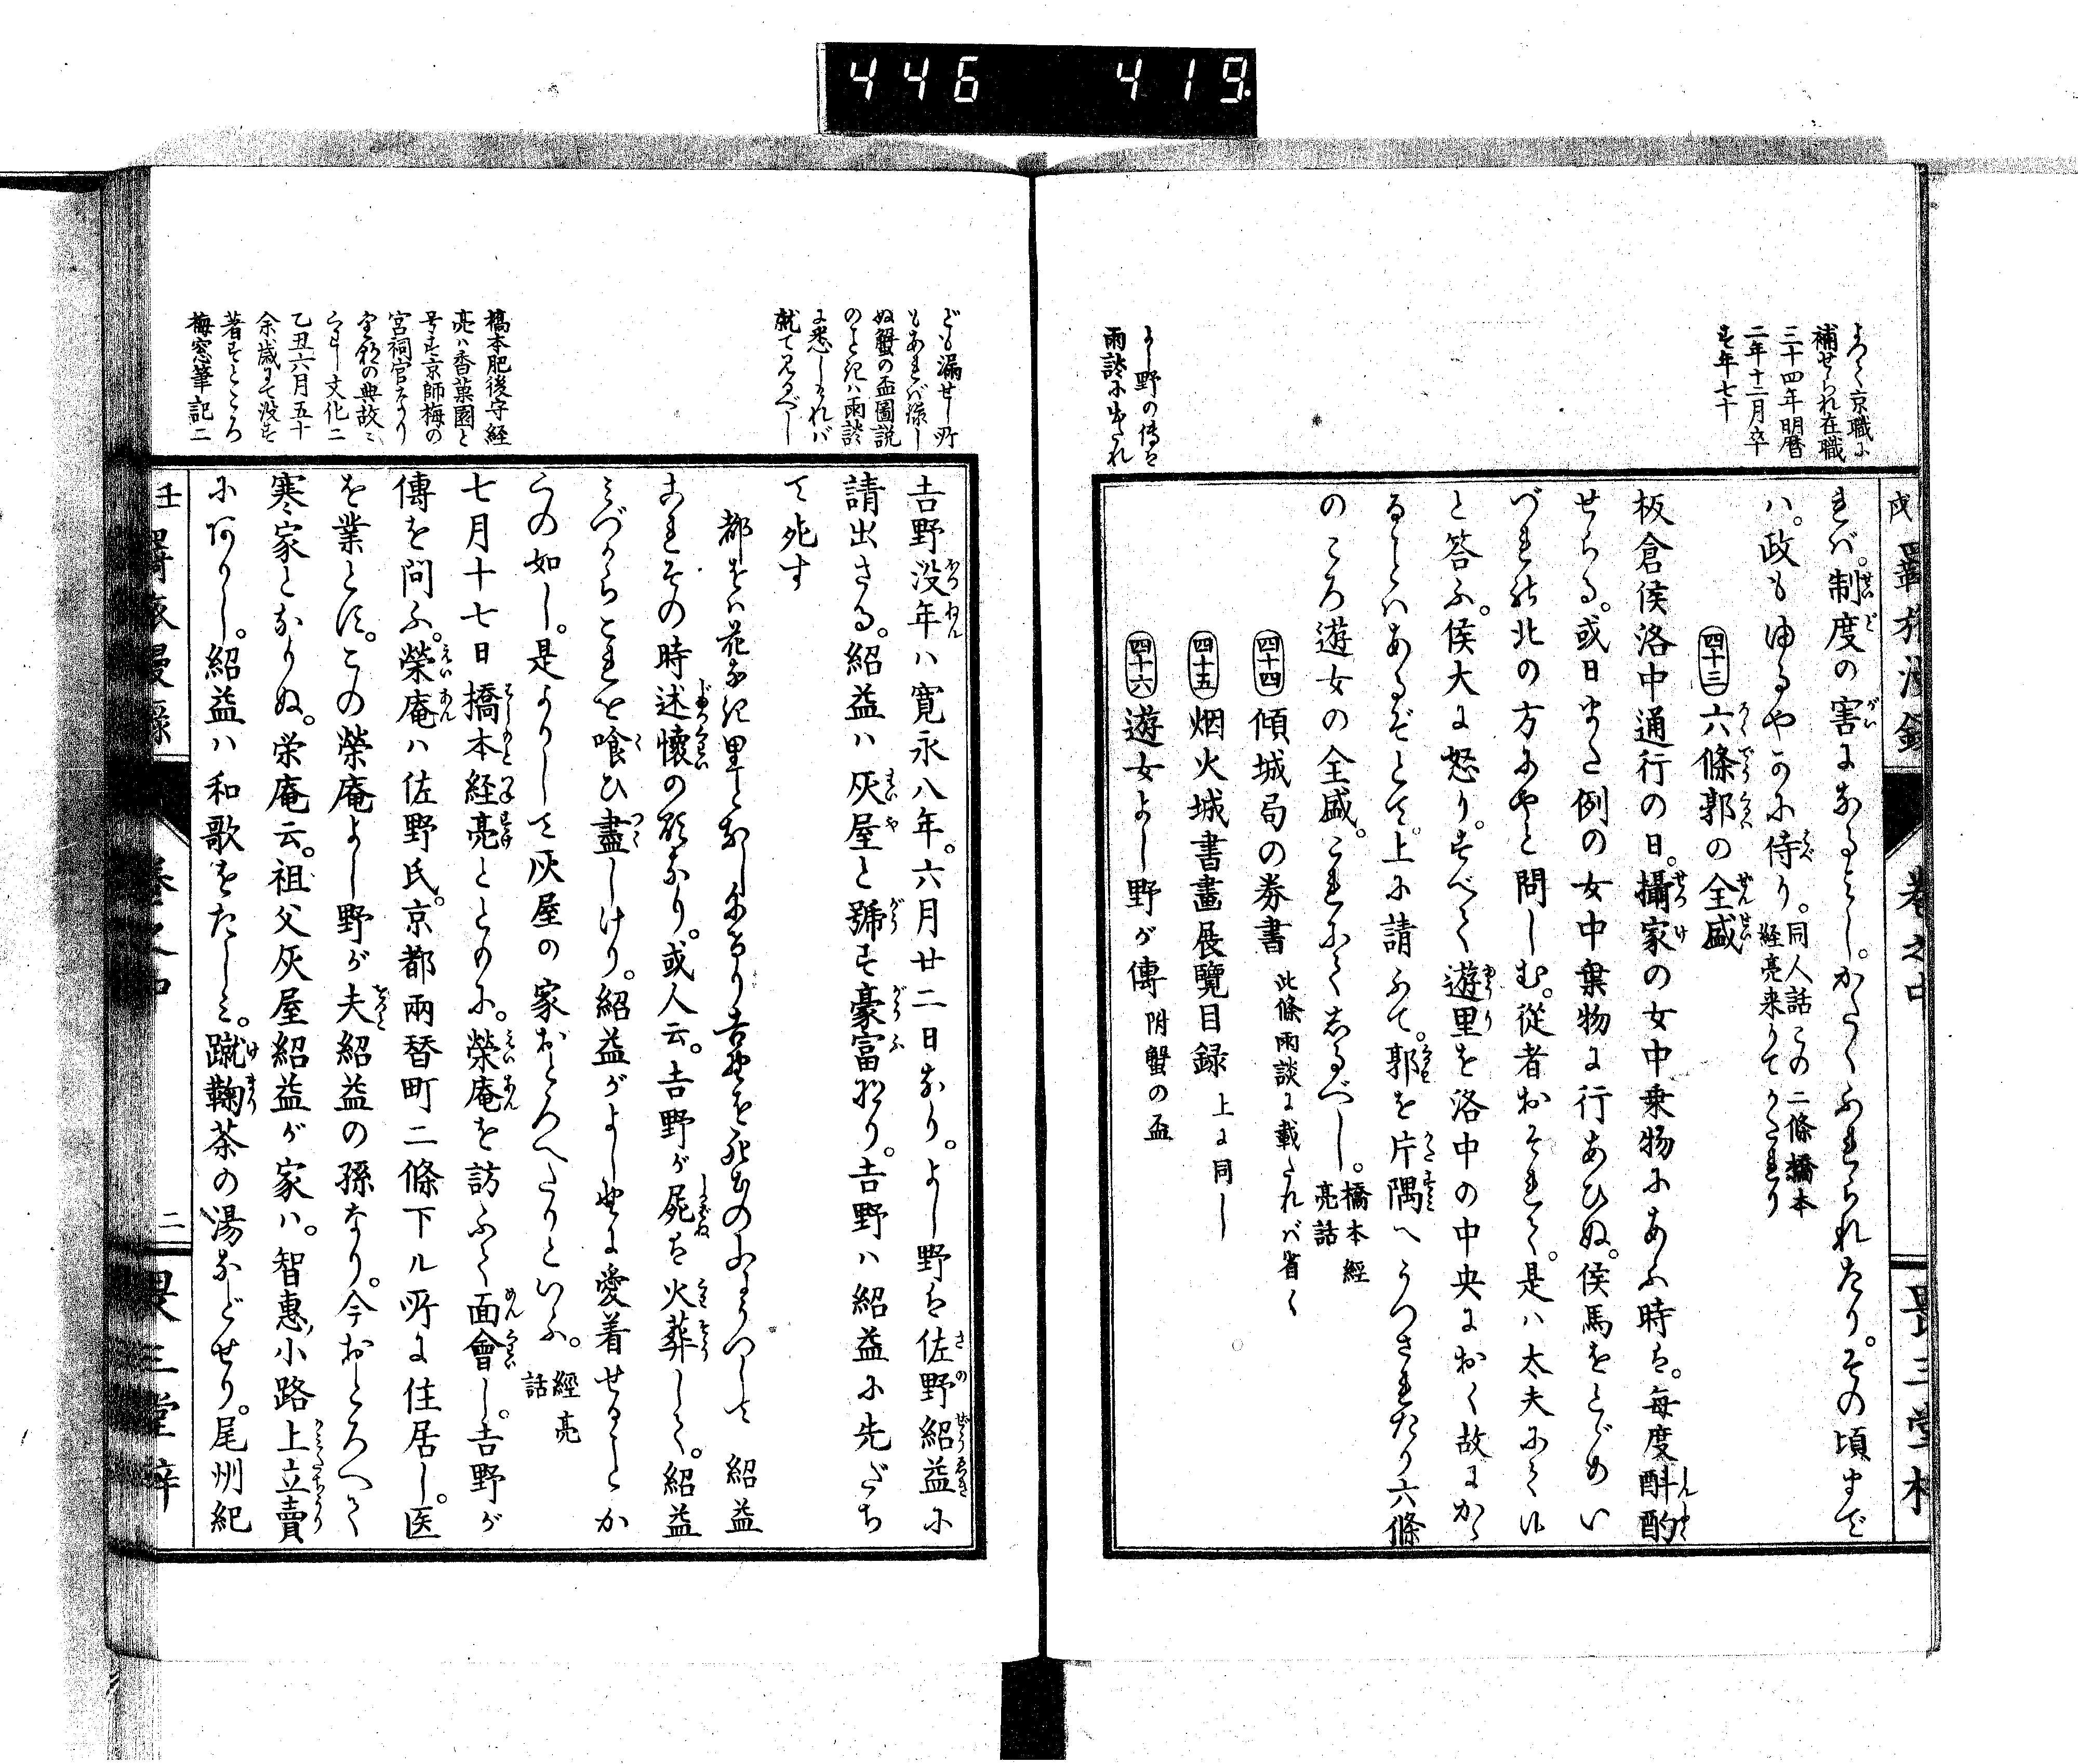 446 419.
よつて京職に
補せられ在職
三十四年明暦
二年十二月卒
す年七十
よし野の傳は
雨談に出たれ
羇旅漫録 巻之中
れば。制度の害になるよし。かたくふれられたり。その頃まで
ハ。政もゆるやかに侍り。同人話この二條橋本
経亮来りてかたれり
四十三 六條郭の全盛
板倉侯洛中通行の日。攝家の女中乗物にあふ時は。毎度斟酌
せらる。或日また例の女中乗物に行あひぬ。侯馬をとゞめい
づれの北の方にやと問しむ。従者おそれて。是ハ太夫にて候
と答ふ。侯大に怒り。すべて遊里を洛中の中央におく故にかゝ
ることハあるぞとて。上に請ふて。郭を片隅へうつされたり六條
のころ遊女の全盛。これにてしるべし。橋本經
亮話
四十四 傾城局の券書 此條雨談に載たれバ省く
四十五 烟火城書畫展覽目録 上に同し
四十六 遊女よし野が傳 附蟹の盃
ども漏せし所
もあれバ録し
ぬ蟹の盃圖説
のことハ雨談
に悉しけれバ
就て見るべし
橋本肥後守経
亮ハ香菓園と
号す京師梅の
宮祠官なり
乙丑六月五十
余歳にて没す
著すところ
梅窓筆記二
吉野没年ハ寛永八年。六月廿二日なり。よし野は佐野紹益に
請出さる。紹益ハ灰屋と號す豪富なり。吉野ハ紹益に先だち
て死す
都をば花なき里となしにけり吉野を死出の山にうつして 紹益
これその時述懐の歌なり。或人云。吉野が屍を火葬して。紹益
みづからこれを喰ひ盡しけり。紹益がよし野に愛着せることか
くの如し。是よりして灰屋の家おとろへたりといふ。經亮
話
七月十七日橋本経亮とともに。榮庵を訪ふて面會し。吉野が
傳を問ふ。榮庵ハ佐野氏。京都兩替町二條下ル所に住居し。医
を業とす。この榮庵よし野が夫紹益の孫なり。今おとろへて
寒家となりぬ。栄庵云。祖父灰屋紹益が家ハ。智惠小路上立賣
にありし。紹益ハ和歌をたしみ。蹴鞠茶の湯などせり。尾州紀
二